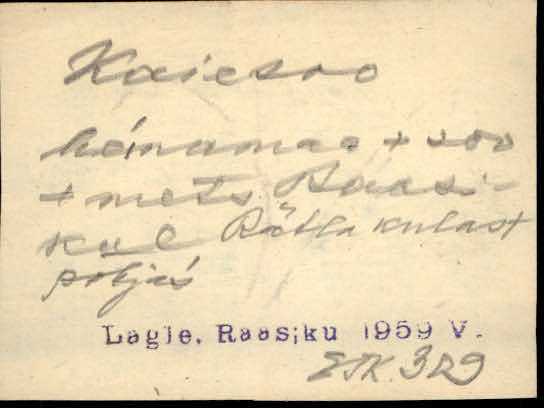 Kaiesoo
heinamaa + soo
+ mets Raasi-
kul Rätla kulast
põhjas
Lagle. Raasiku 1959 V.
ETK. 329